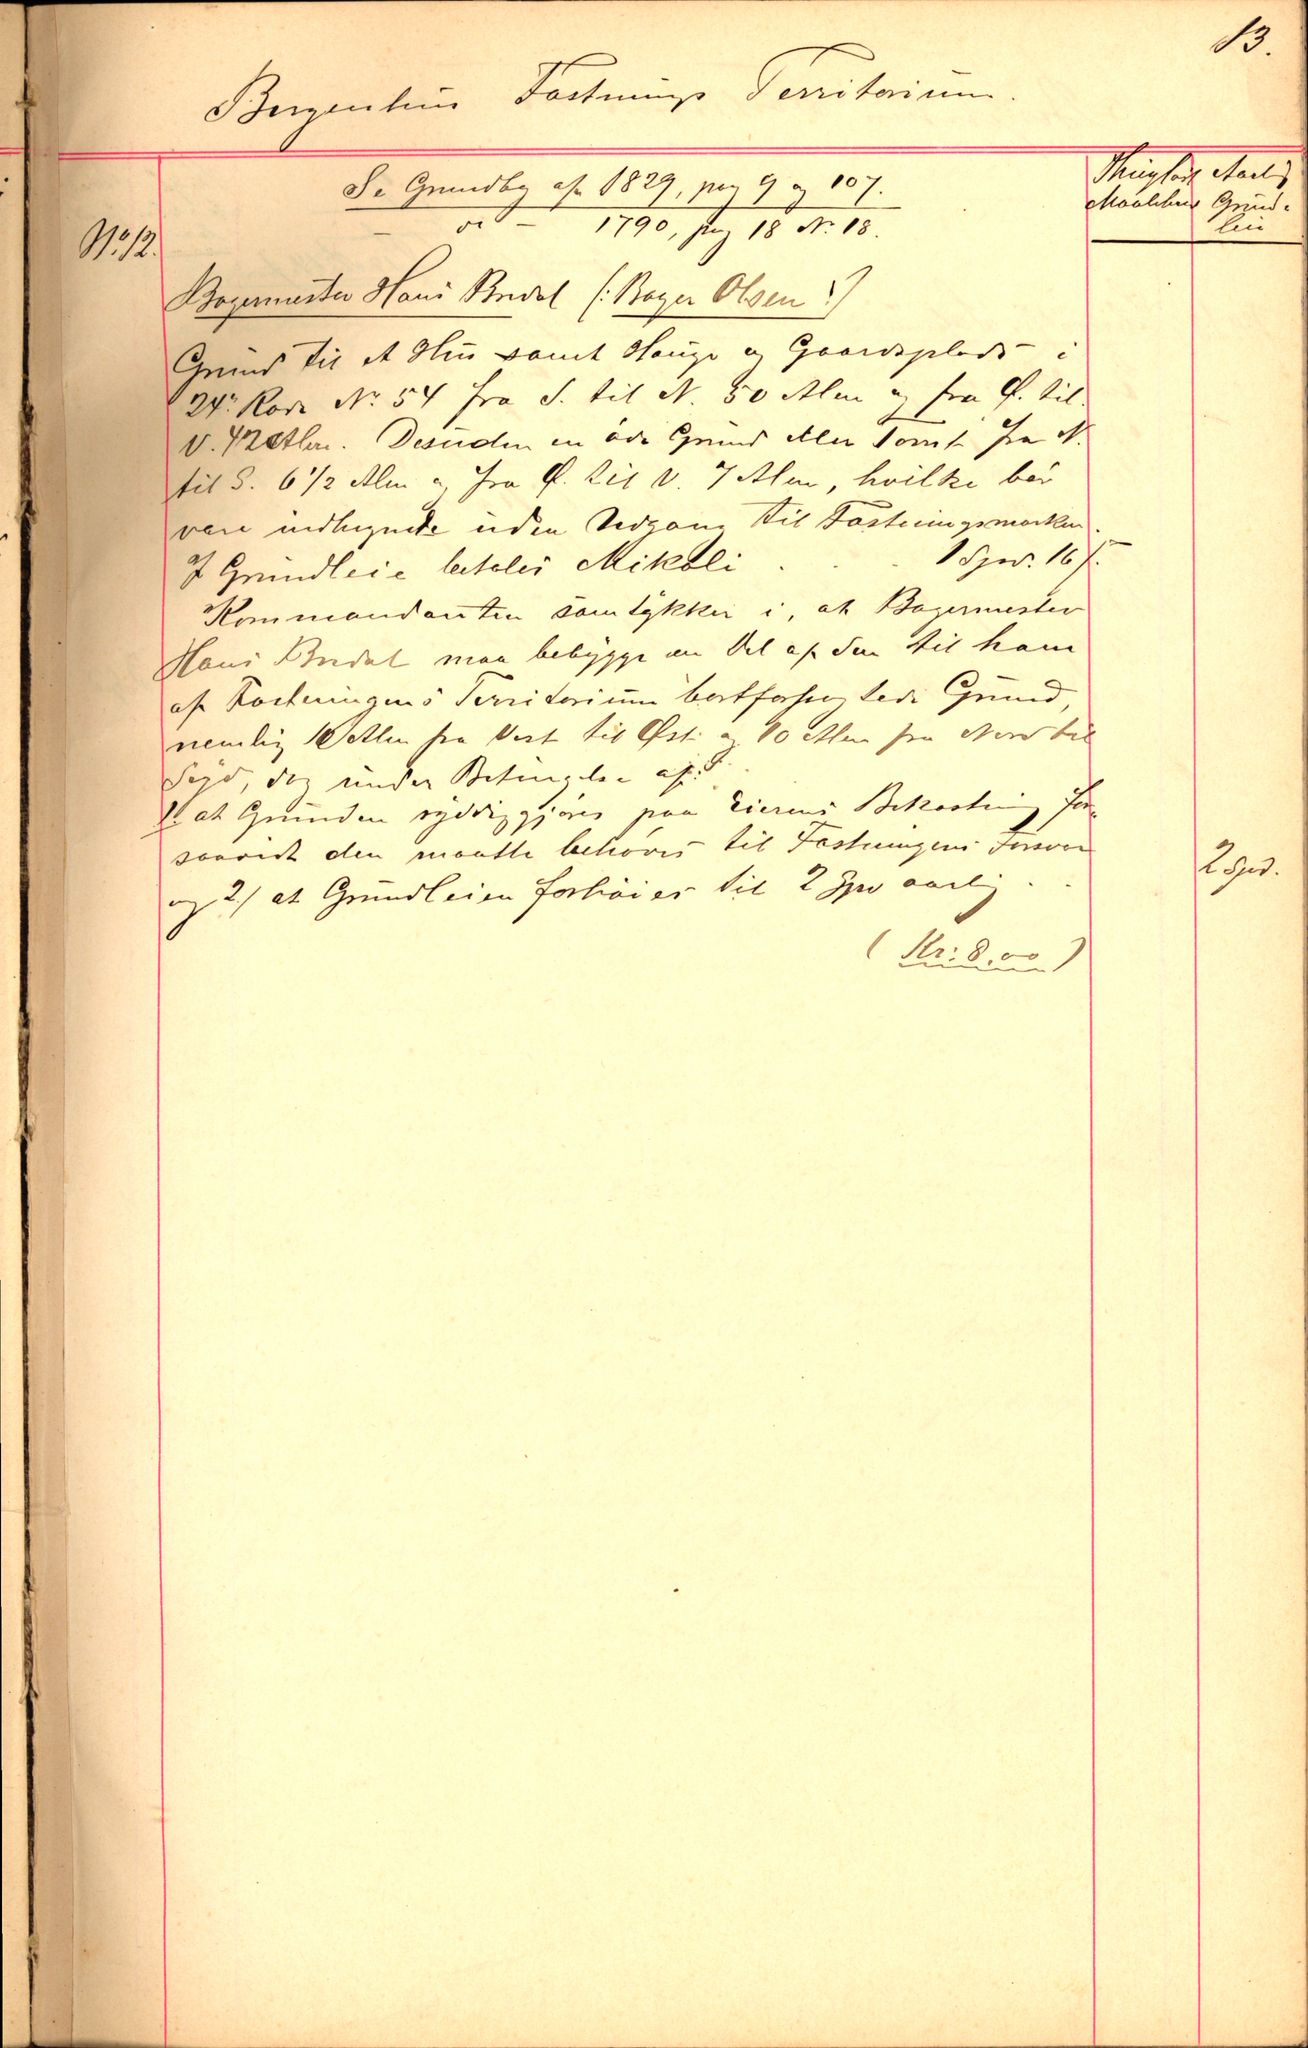 13.
Bergenhus Fæstnings Territorium.
Se Grundbog af 1829, pag 9 og 107.
— do — 1790, pag 18 Nr. 18.
Aarlig
Maalebrev Grund-
leie
No 12.
Bagermester Hans Bredal (: Bager Olsen :)
Grund til et Hus samt Hauge og Gaardsplads i
24de Rode No. 54 fra S. til N. 50 Alen og fra Ø. til
V. 42 Alen. Desuden en øde Grund eller Tomt fra N.
til S. 6 1/2 Alen og fra Ø. til V. 7 Alen, hvilke bør
være indhegnede uden Udgang til Fæstningsmarken.
I Grundleie betales Mikeli . . . 1 Spd. 16 ſ.
Kommandanten samtykker i, at Bagermester
Hans Bredal maa bebygge en Del af den til ham
af Fæstningens Territorium bortforpagtede Grund,
nemlig 10 Alen fra Vest til Øst og 10 Alen fra Nord til
Syd, dog under Betingelse af:
1/ at Grunden ryddiggjøres paa Eierens Bekostning for-
saavidt den maatte behøves til Fæstningens Forsvar
og 2/ at Grundleien forhøies til 2 Spd aarlig . .
2 Spd.
(Kr: 8.00)